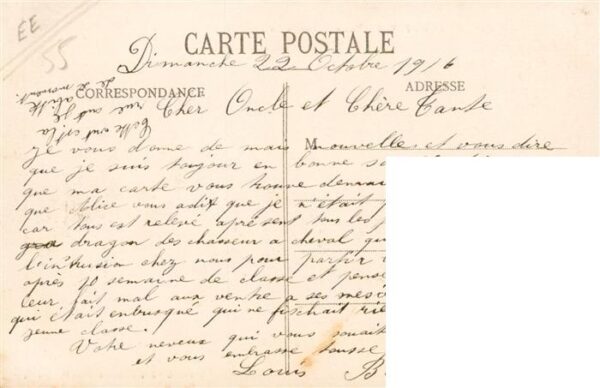 EE
55
CARTE POSTALE
Dimanche 22 Octobre 1916
CORRESPONDANCE
ADRESSE
Cher Oncle et Chère Tante
M
Je vous donne de mais nouvelles et vous dire
que je suis toujour en bonne
que ma carte vous trouve de
que Alice vous a dit que je n'était
car tous est relevé apresent tous les
dragon des chasseur a cheval qu
l'intrusion chez nous pour partir
après 10 semaine de classe et pense
leur fait mal aux ventre a ses
qui était enbusqué qui ne fischait rie
jeune classe.
Votre neveux qui vous souait
et vous embrasse tousse
Louis B
Cette out est la
rue out je
abitte
de se
moment